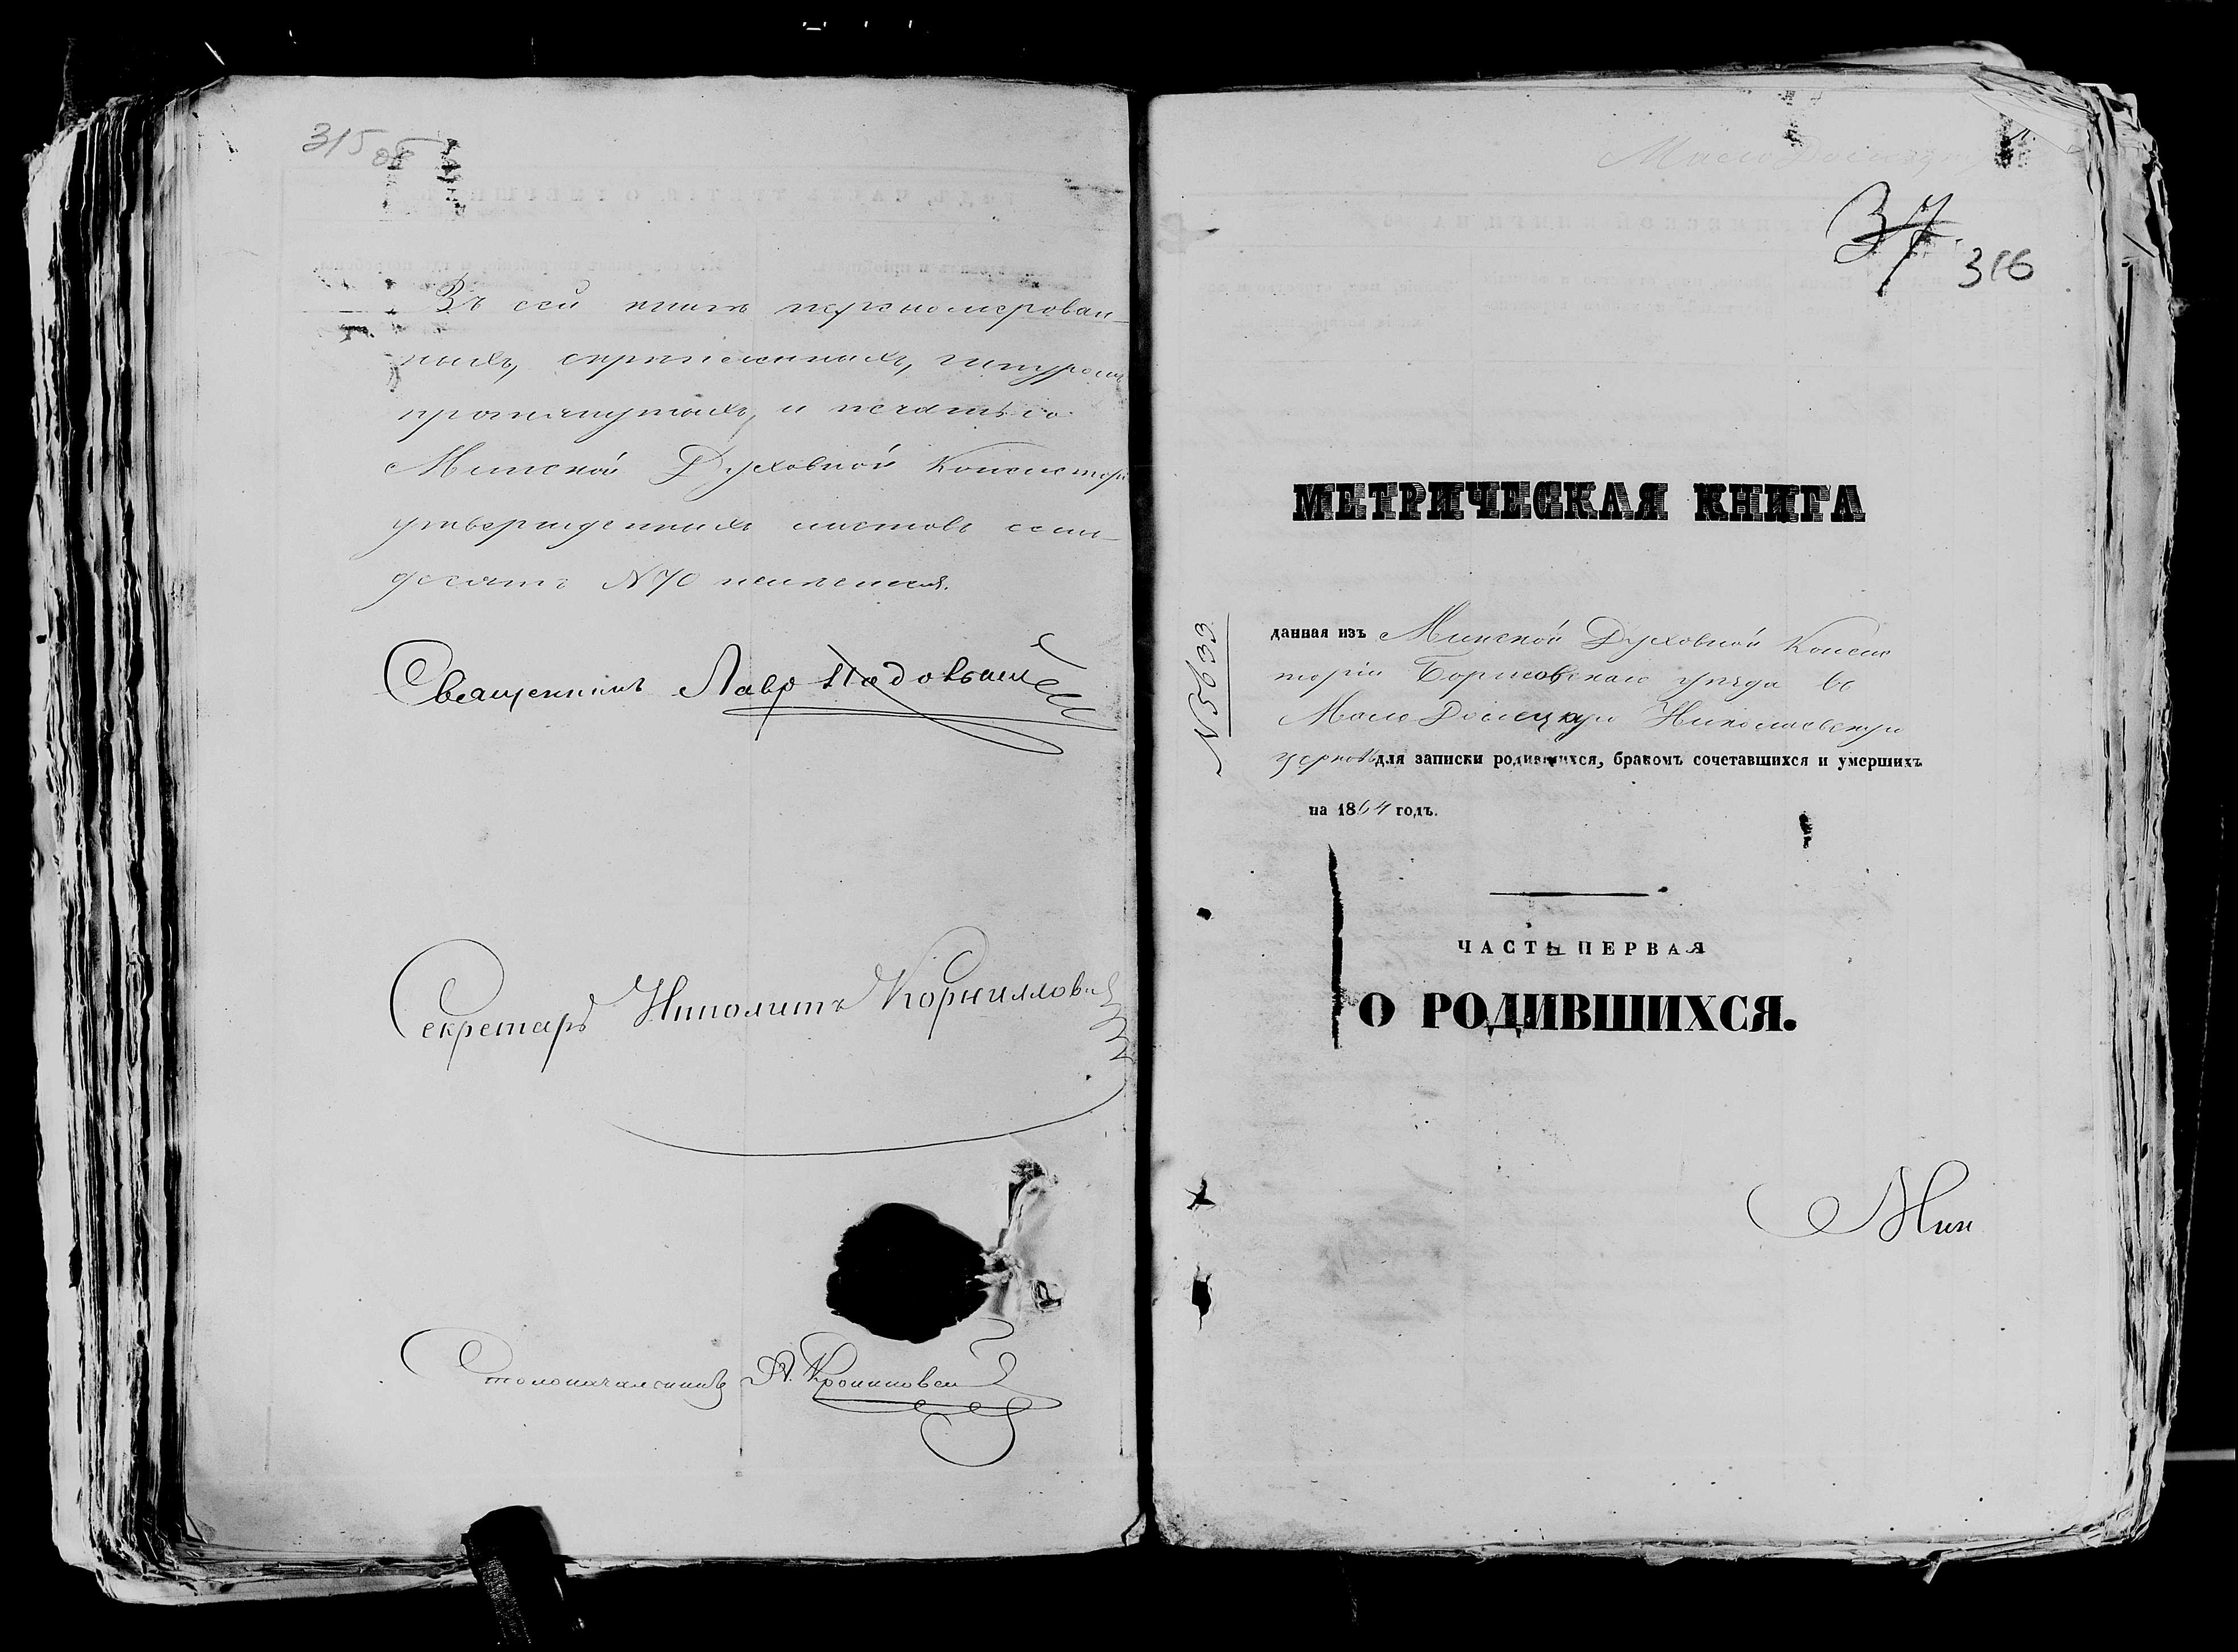 315 об
Въ сей книгѣ перенумерован-
ныхъ, скрѣпленныхъ, шнуромъ
протянутыхъ, и печатью
Минской Духовной Консистор
утвержденныхъ листовъ семь-
десятъ N 70
Священникъ Лавр
Секретарь Ипполитъ Корнилловичъ
Столоначальникъ А.
Мало Долецкую
37
316
МЕТРИЧЕСКАЯ КНИГА
N 5633
данная изъ Минской Духовной Консис
торіи Борисовскаго уѣзда въ
Мало Долецкую Николаевскую
церковь для записки родившихся, бракомъ сочетавшихся и умершихъ
на 1864 годъ.
ЧАСТЬ ПЕРВАЯ
О РОДИВШИХСЯ.
Мин